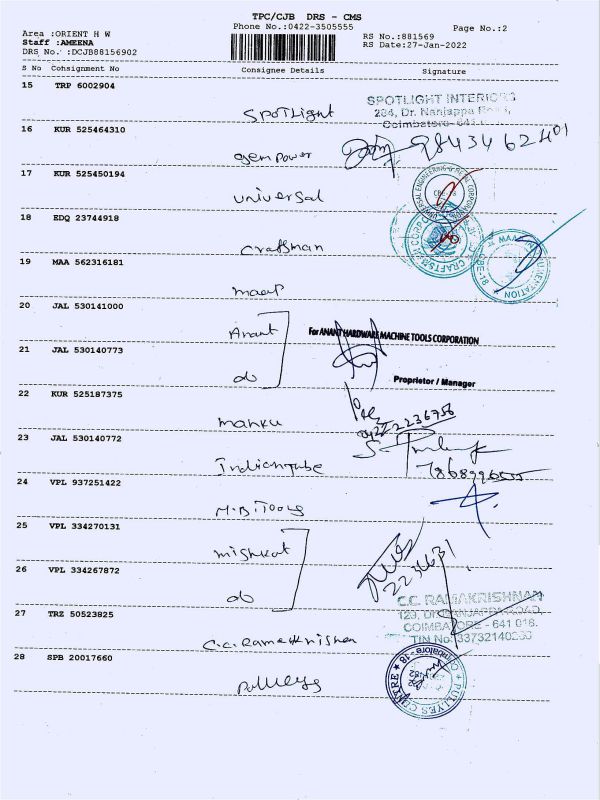 TPC/CJB DRS - CMS
Phone No.:0422-3505555
Page No.:2
Area :ORIENT H W
Staff :AMEENA
DRS No. :DCJB88156902
RS No.:881569
RS Date:27-Jan-2022
S No Consignment No Consignee Details Signature
15 TRP 6002904
Spotlight
SPOTLIGHT INTERIORS
284, Dr. Nanjappa Road,
Coimbatore
16 KUR 525464310
gem power
17 KUR 525450194
universal
18 EDQ 23744918
Craftsman
19 MAA 562316181
maap
20 JAL 530141000
Anant
For ANANT HARDWARE MACHINE TOOLS CORPORATION
21 JAL 530140773
do
Proprietor / Manager
22 KUR 525187375
manku
0422 2236756
23 JAL 530140772
Indiantube
24 VPL 937251422
25 VPL 334270131
mishkat
26 VPL 334267872
do
27 TRZ 50523825
C.C. Ramakrishnan
C.C. RAMAKRISHNAN
129, DR.NANJAPPA ROAD,
COIMBATORE - 641 018.
28 SPB 20017660
Pulleys
PULLYES CENTRE